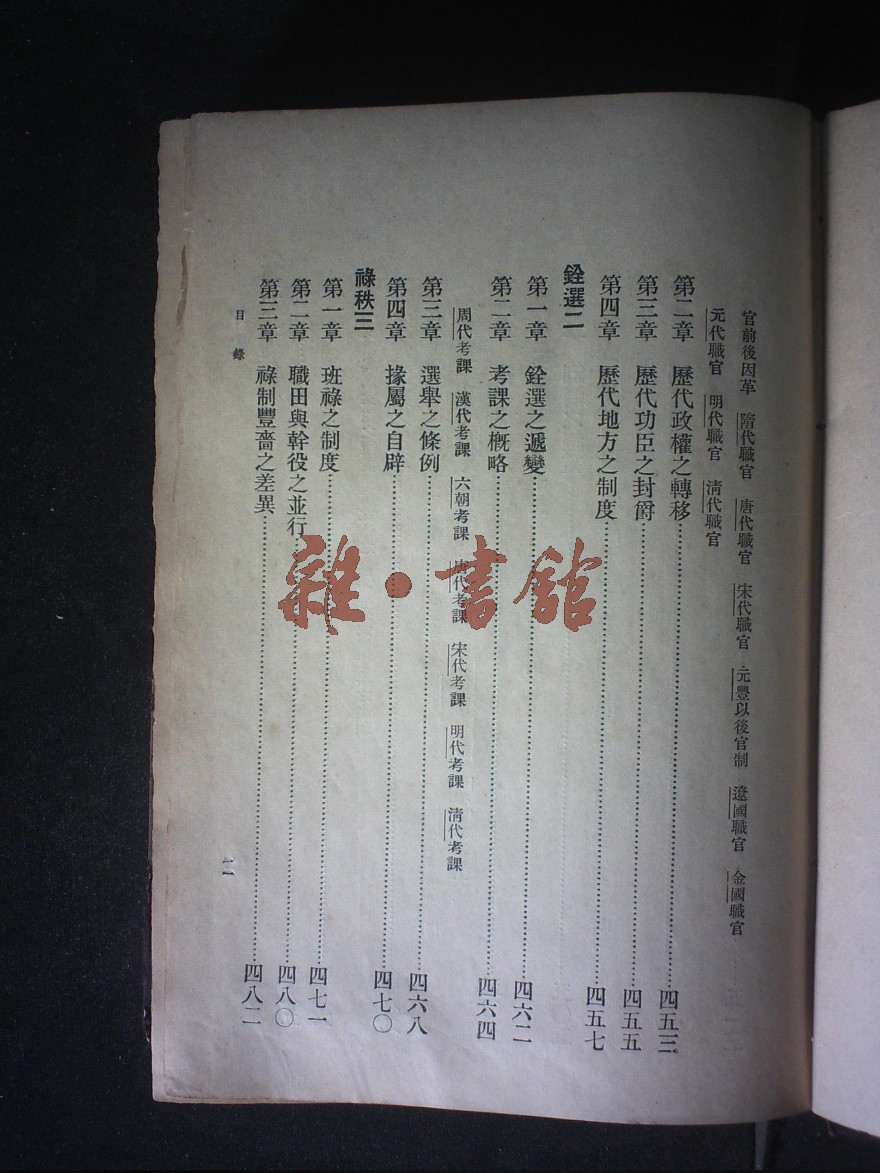 官前後因革　隋代職官　唐代職官　宋代職官　元豐以後官制　遼國職官　金國職官
元代職官　明代職官　清代職官
第二章　歷代政權之轉移……四五三
第三章　歷代功臣之封爵……四五五
第四章　歷代地方之制度……四五七
銓選二
第一章　銓選之遞變……四六二
第二章　考課之概略……四六四
周代考課　漢代考課　六朝考課　唐代考課　宋代考課　明代考課　清代考課
第三章　選舉之條例……四六八
第四章　掾屬之自辟……四七〇
祿秩三
第一章　班祿之制度……四七一
第二章　職田與幹役之並行……四八〇
第三章　祿制豐嗇之差異……四八二
目錄
二
雜·書館